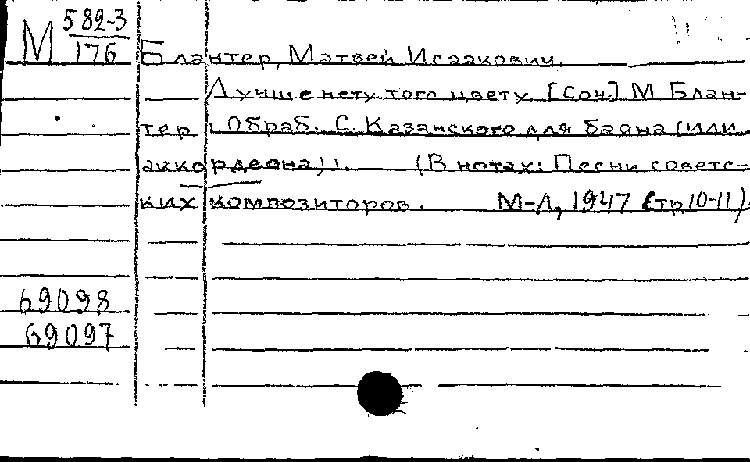 М 582-3
176
Блантер, Матвей Исаакович.
Лучше нету того цвету [Соч.] М Блан-
тер, Обраб. С. Казанского для баяна (или
аккордеона)). (В нотах: Песни советс-
ких композиторов. М-Л, 1947 Стр, 10-11).
69098
69097